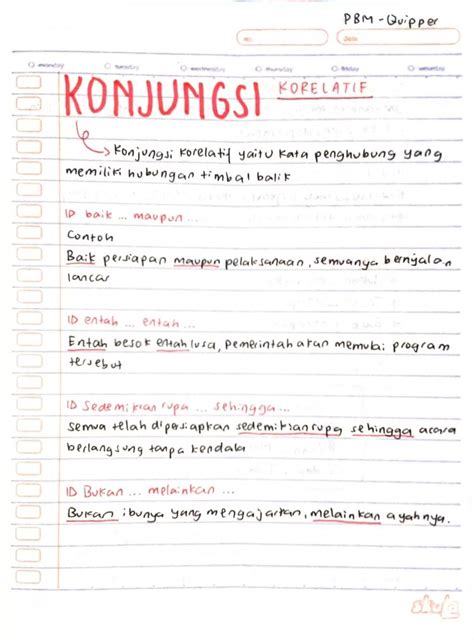 PBM - Quipper
no.
date
monday tuesday wednesday thursday friday saturday
KONJUNGSI KORELATIF
Konjungsi korelatif yaitu kata penghubung yang
memiliki hubungan timbal balik
ID baik ... maupun ...
Contoh
Baik persiapan maupun pelaksanaan, semuanya bernjalan
lancar
ID entah ... entah ...
Entah besok entah lusa, pemerintah akan memulai program
tersebut
ID Sedemikian rupa ... sehingga ...
Semua telah dipersiapkan sedemikian rupa sehingga acara
berlangsung tanpa kendala
ID Bukan ... melainkan ...
Bukan ibunya yang mengajarkan, melainkan ayahnya.